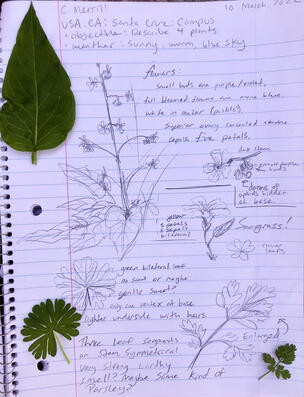 C. Merrill
10 March, 2022
USA: CA: Santa Cruz: Campus
• objective: Describe 4 plants
• weather: sunny, warm, blue sky
flowers:
small buds are purple/violet.
full bloomed flowers are more blue.
white in center (pistils)
Superior ovary
sepals five petals.
dark stem
small purple buds
aphids hidden
at base
yellow
5 petals
5 sepals
bilateral
Sourgrass!
clover
leafs
green bilateral leaf
no scent or maybe
gentle sweet?
only one vertex at base
lighter underside with hairs.
Enlarged
Three Leaf segments
on stem symmetrical
very strong earthy
smell? Maybe some kind of
Parsley?